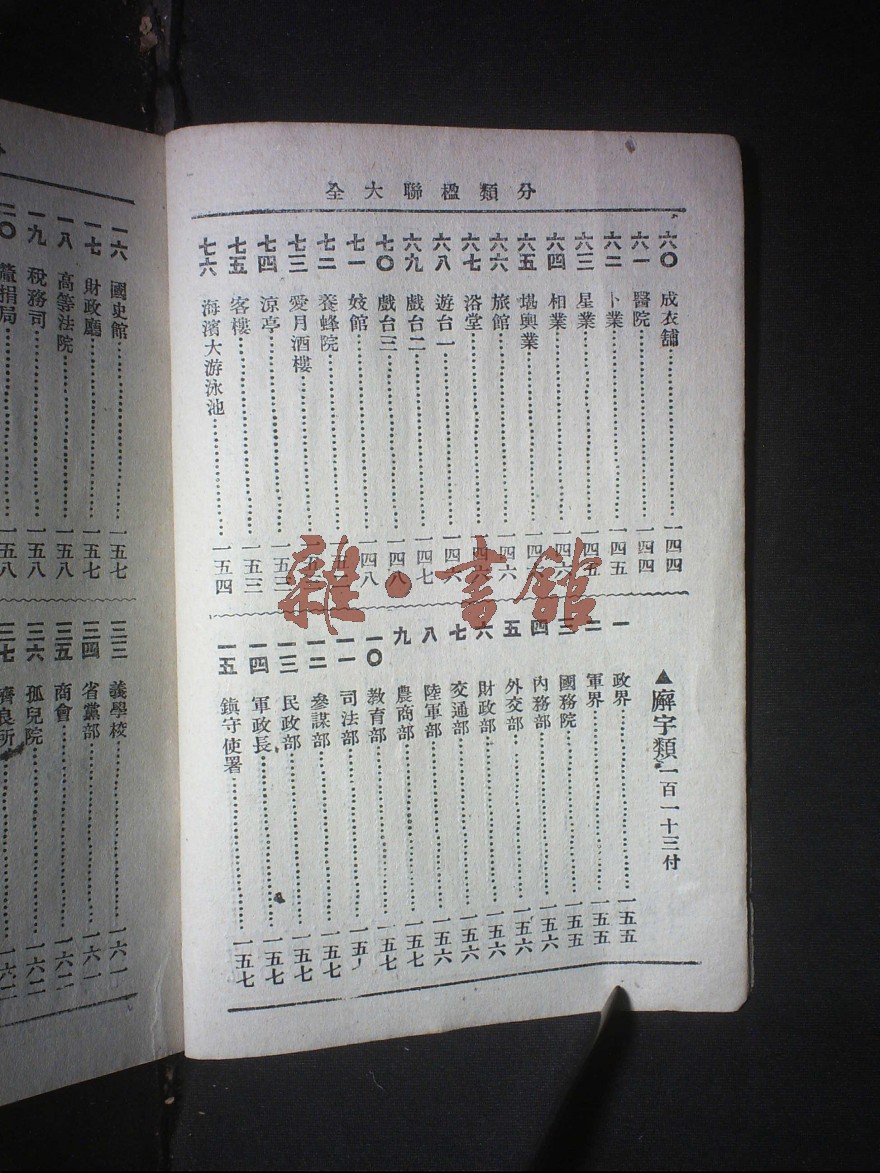 分類楹聯大全
六〇 成衣舖 一四四
六一 醫院 一四四
六二 卜業 一四五
六三 星業 一四五
六四 相業 一四六
六五 堪輿業 一四六
六六 旅館 一四六
六七 浴堂 一四六
六八 遊台一 一四六
六九 戲台二 一四七
七〇 戲台三 一四八
七一 妓館 一四八
七二 養蜂院 一五二
七三 愛月酒樓
七四 涼亭 一五三
七五 客樓 一五三
七六 海濱大游泳池 一五四
▲廨宇類 一百一十三付
一 政界 一五五
二 軍界 一五五
三 國務院 一五五
四 內務部 一五六
五 外交部 一五六
六 財政部 一五六
七 交通部 一五六
八 陸軍部 一五六
九 農商部 一五七
一〇 教育部 一五七
一一 司法部 一五
一二 參謀部 一五七
一三 民政部 一五七
一四 軍政長 一五七
一五 鎮守使署 一五七
一六 國史館 一五七
一七 財政廳 一五七
一八 高等法院 一五八
一九 稅務司 一五八
二〇 釐捐局 一五八
三三 義學校 一六一
三四 省黨部 一六一
三五 商會 一六二
三六 孤兒院 一六二
三七 濟良所 一六二
雜·書館